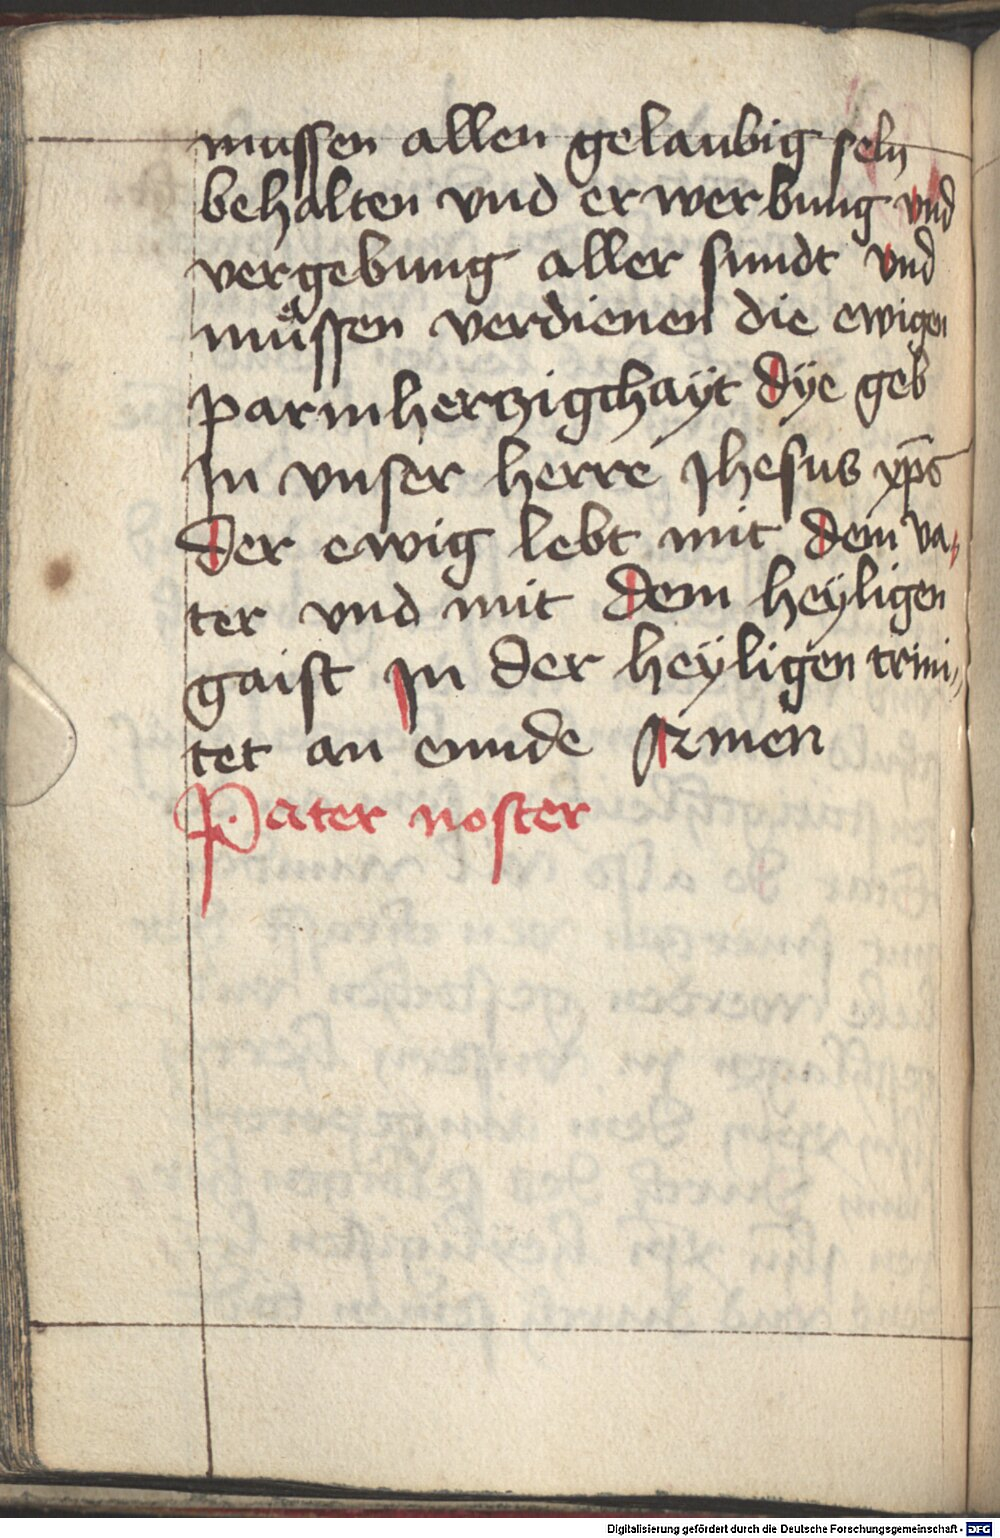 mussen allen gelaubig seln
behalten vnd erwerbung vnd
vergebung aller sundt vnd
muͤssen verdienen die ewigen
parmhertzigchaÿt dÿe geb
Jn vnser herre Jhesus xp̄s
der ewig lebt mit dem va„
ter vnd mit dem heÿligen
gaist Jn der heÿligen trini„
tet an ennde Amen
Pater noster
Digitalisierung gefördert durch die Deutsche Forschungsgemeinschaft - DFG